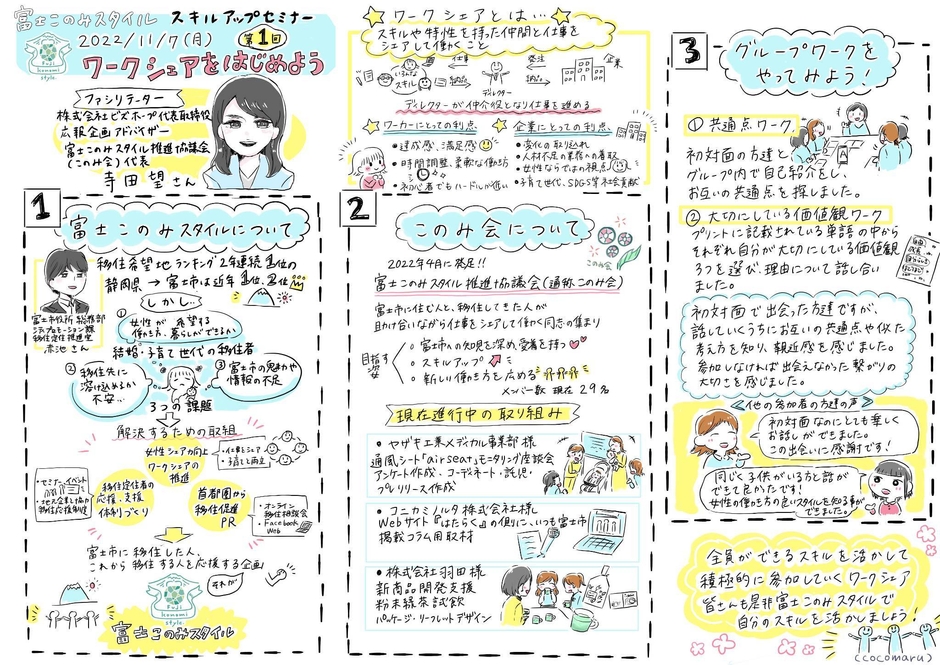 富士このみスタイル スキルアップセミナー
2022/11/7(月) 第1回
ワークシェアをはじめよう
Fuji
konomi
style.
ファシリテーター
株式会社ビズホープ代表取締役
広報企画アドバイザー
富士このみスタイル推進協議会
(このみ会)代表
寺田望さん
ワークシェアとは…
スキルや特性を持った仲間と仕事を
シェアして働くこと
いろんな
スキル
仕事
納品
ディレクター
発注
納品
企業
ディレクターが仲介役となり仕事を進める
ワーカーにとっての利点
・達成感、満足感
・時間調整、柔軟な働き方
・初心者でもハードルが低い
企業にとっての利点
・変化の取り込れ
・人材不足の業務への着取
・女性ならではの視点
・子育て世代、SDGS等社会貢献
1
富士このみスタイルについて
富士市役所 総務部
シティプロモーション課
移住定住推進室
赤池さん
移住希望地ランキング2年連続1位の
静岡県 → 富士市は近年1位、2位
しかし…
①
女性が希望する
働き方、暮らしができるか
結婚・子育て世代の移住者
②
移住先に
溶け込めるか
不安…
③
富士市の魅力や
情報の不足
3つの課題
解決するための取組
女性シェア力向上
ワークシェアの
推進
・仕事をシェア
・子育てと両立
・セミナー、イベント
・地元企業と協力
移住応援制度
移住定住者の
応援、支援
体制づくり
首都圏から
移住促進
PR
・オンライン
移住相談会
・Facebook
Web
富士市に移住した人、
これから移住する人を応援する企画
それが
Fuji
konomi
style.
富士このみスタイル
2
このみ会について
このみ会
2022年4月に発足!!
富士このみスタイル推進協議会(通称このみ会)
富士市に住む人と、移住してきた人が
助け合いながら仕事をシェアして働く同志の集まり
目指す姿
○ 富士市への知見を深め、愛着を持つ
○ スキルアップ
○ 新しい働き方を広める
メンバー数 現在29名
現在進行中の取り組み
・ヤザキ工業メディカル事業部様
通風シート「airseat」モニタリング座談会
アンケート作成、コーディネート、託児、
プレリリース作成
・コニカミノルタ株式会社様
Webサイト『はたらく』の傍りに、いつも富士市
掲載コラム用取材
・株式会社羽田様
新商品開発支援
粉末緑茶試飲
パッケージ・リーフレットデザイン
3
グループワークを
やってみよう!
① 共通点ワーク
初対面の方達と
グループ内で自己紹介をし、
お互いの共通点を探しました。
② 大切にしている価値観ワーク
プリントに記載されている単語の中から
それぞれ自分が大切にしている価値観
3つを選び、理由について話し合い
ました。
初対面で出会った方達ですが、
話していくうちにお互いの共通点や似た
考え方を知り、親近感を感じました。
参加しなければ出会えなかった繋がりの
大切さを感じました。
他の参加者の方達の声
初対面なのにとても楽しく
お話しができました。
この出会いに感謝です!
同じく子供がいる方と話が
できて良かったです!
女性の働き方の良いスタイルを知る事が
できました。
全員ができるスキルを活かして
積極的に参加していくワークシェア
皆さんも是非富士このみスタイルで
自分のスキルを活かしましょう!
(cocomaru)